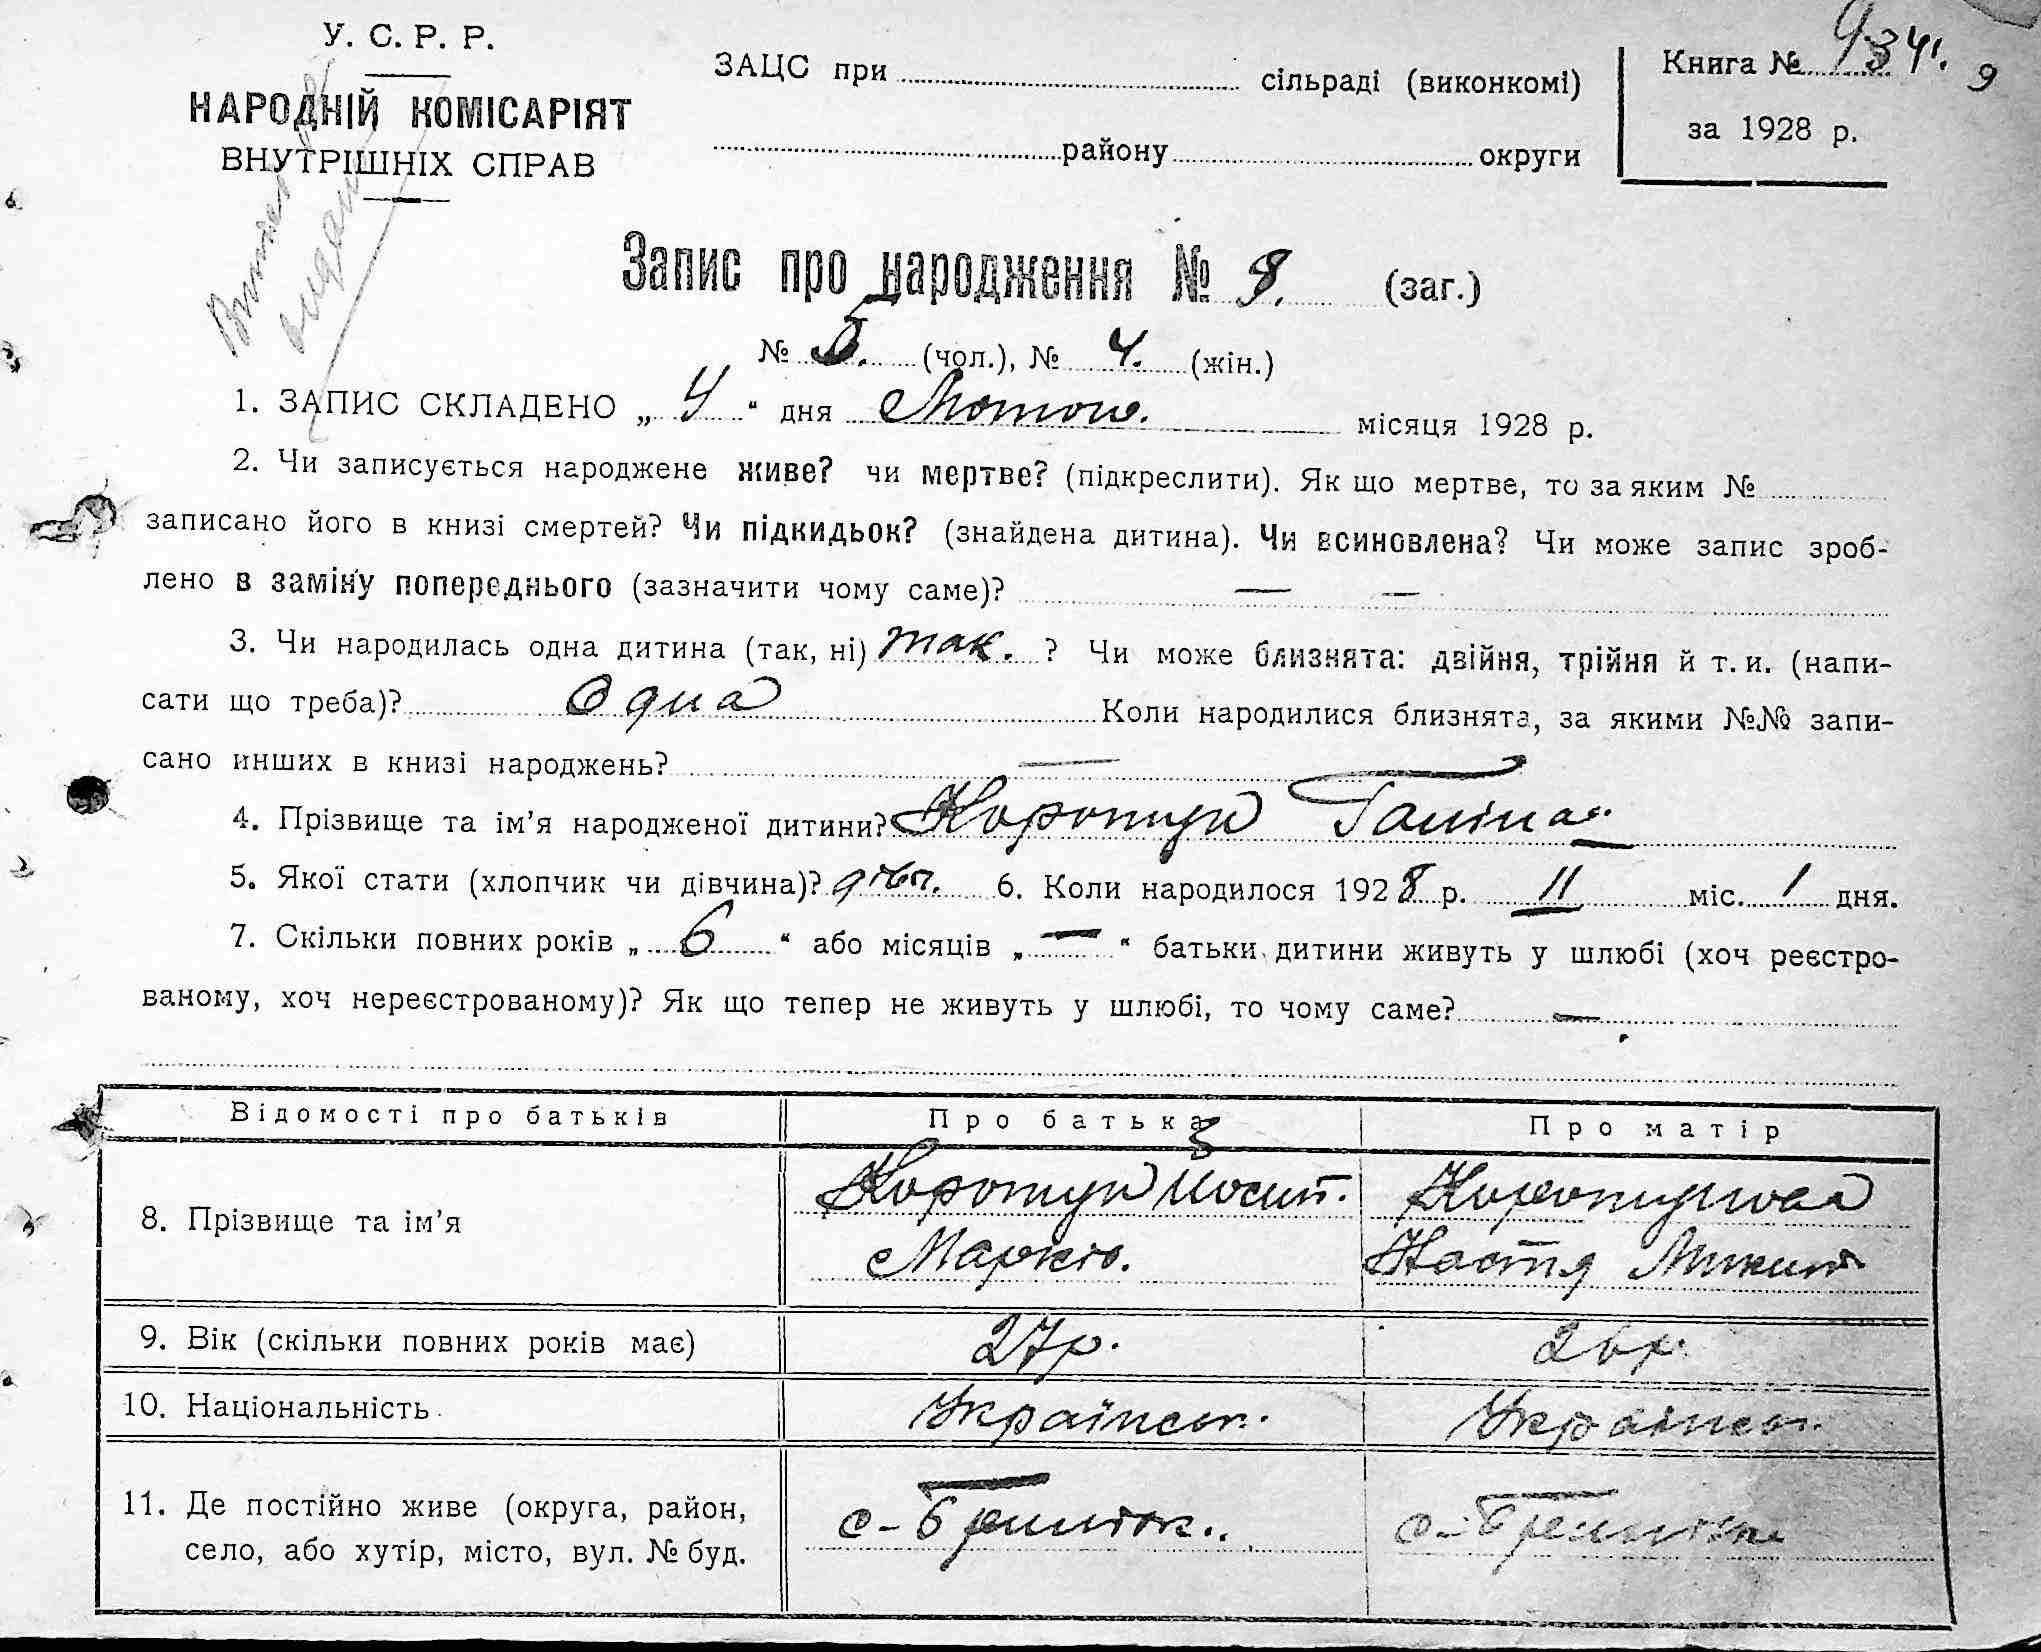 У. С. Р. Р.
НАРОДНІЙ КОМІСАРІЯТ
ВНУТРІШНІХ СПРАВ
ЗАЦС при сільраді (виконкомі)
району округи
Книга № 934. 9
за 1928 р.
Запис про народження № 9. (заг.)
№ 5. (чол.), № 4. (жін.)
1. ЗАПИС СКЛАДЕНО „ 4 “ дня Лютого. місяця 1928 р.
2. Чи записується народжене живе? чи мертве? (підкреслити). Як що мертве, то за яким №
записано його в книзі смертей? Чи підкидьок? (знайдена дитина). Чи всиновлена? Чи може запис зроб-
лено в заміну попереднього (зазначити чому саме)? — —
3. Чи народилась одна дитина (так, ні) так. ? Чи може близнята: двійня, трійня й т. и. (напи-
сати що треба)? Одна Коли народилися близнята, за якими №№ запи-
сано инших в книзі народжень? —
4. Прізвище та ім’я народженої дитини? Коротун Галіна
5. Якої стати (хлопчик чи дівчина)? дівч. 6. Коли народилося 1928 р. II міс. 1 дня.
7. Скільки повних років „ 6 “ або місяців „ — “ батьки дитини живуть у шлюбі (хоч реєстро-
ваному, хоч нереєстрованому)? Як що тепер не живуть у шлюбі, то чому саме? —
Відомості про батьків Про батька Про матір
8. Прізвище та ім’я Коротун Йосип. Коротунова
Марків. Настя Микит
9. Вік (скільки повних років має) 27р. 26р.
10. Національність Українсь. Українсь.
11. Де постійно живе (округа, район,
село, або хутір, місто, вул. № буд.